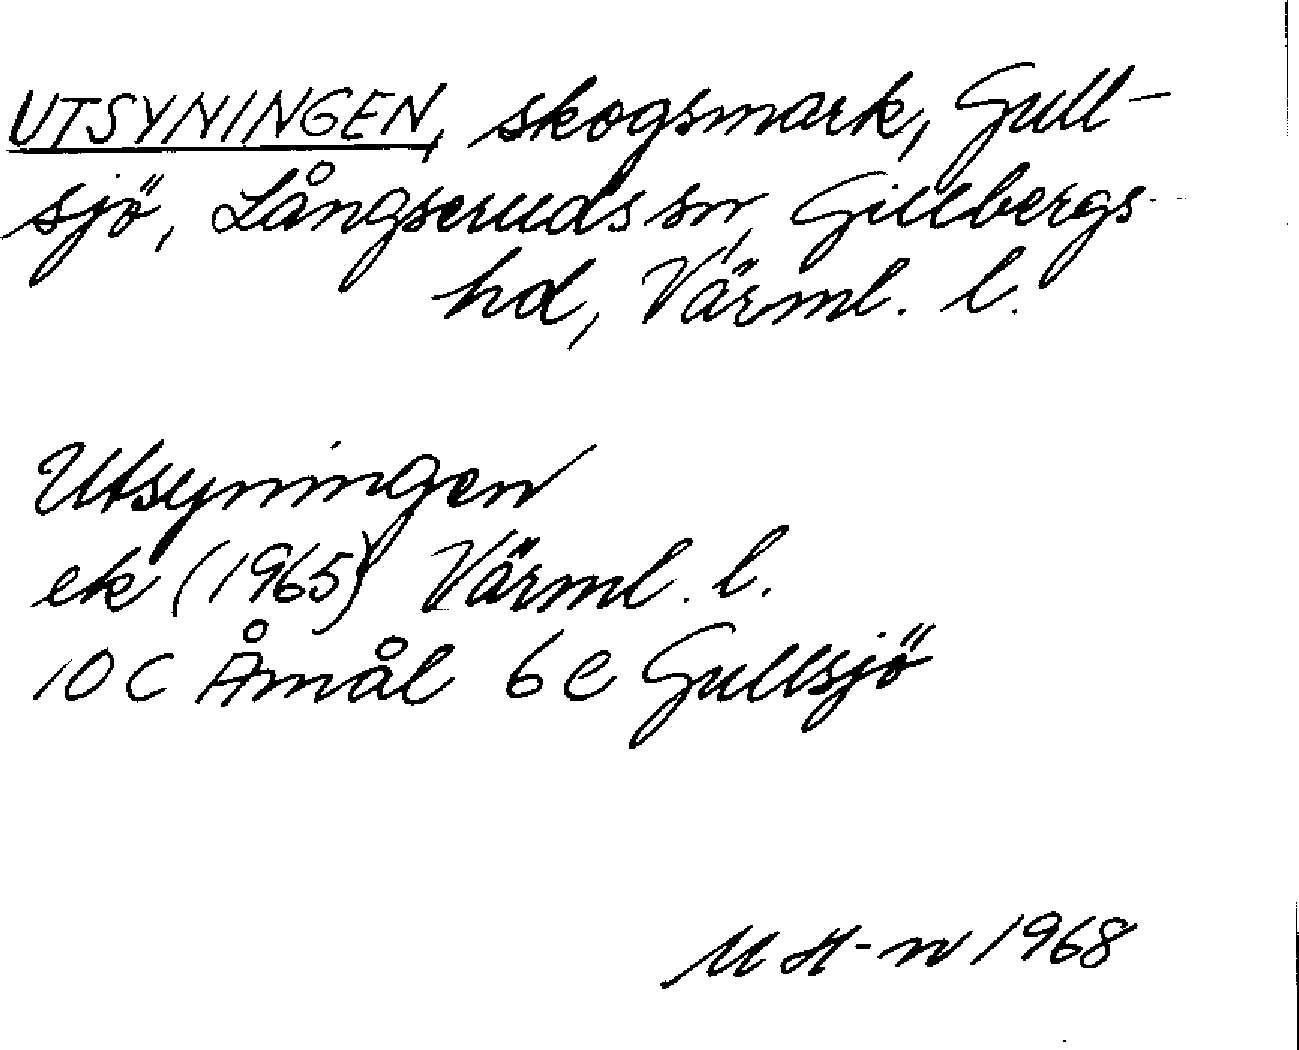 UTSYNINGEN, skogsmark, Gull-
sjö, Långseruds sn, Gillbergs
hd, Värml. l.
Utsyningen
ek (1965) Värml. l.
10 C Åmål 6 e Gullsjö
M H-n 1968